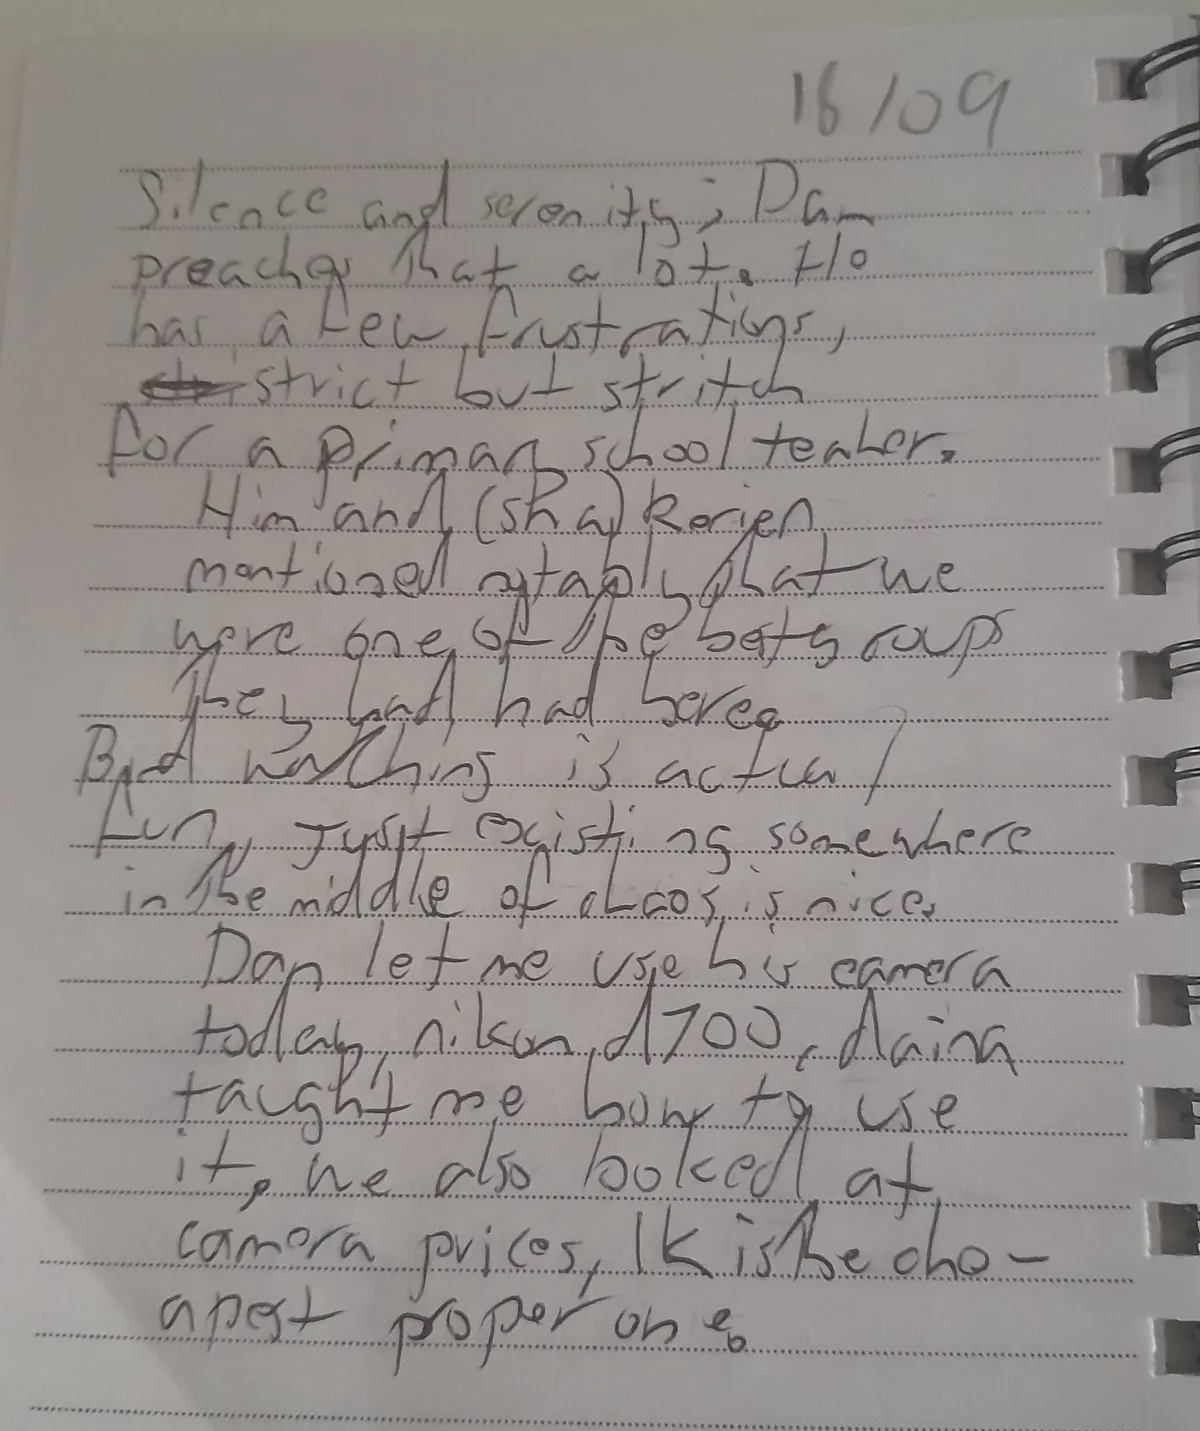 18/09
Silence and serenity; Dan
preaches that a lot. He
has a few frustrations,
strict but stritch
for a primary school teaher.
Him and (sha) kerien
mentioned notably that we
were one of the best groups
they had had here.
Bird watching is actual
fun, Just existing somewhere
in the middle of chaos is nice.
Dan let me use his camera
today, nikon, d700, daina
taught me how to use
it, we also looked at
camera prices, 1K is the che-
apest proper one.